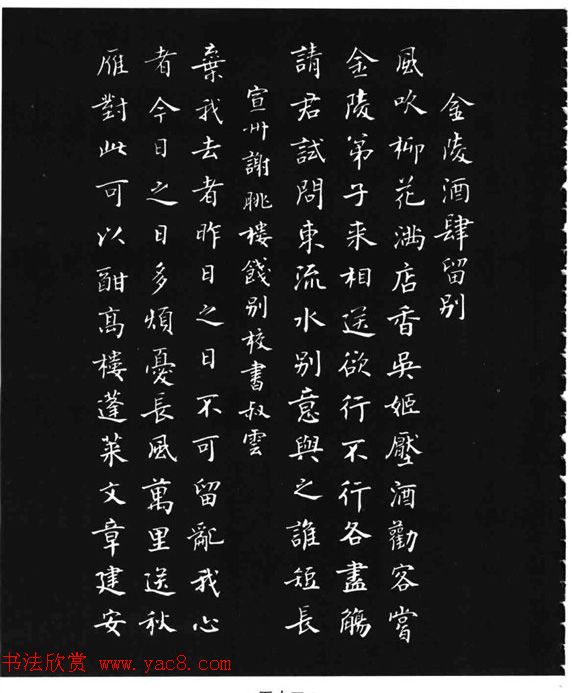 金陵酒肆留别
風吹柳花満店香吳姬壓酒勸客嘗
金陵弟子来相送欲行不行各盡觴
請君試問東流水别意與之誰短長
宣州謝朓樓餞别校書叔雲
棄我去者昨日之日不可留亂我心
者今日之日多煩憂長風萬里送秋
雁對此可以酣高樓蓬萊文章建安
书法欣赏 www.yac8.com